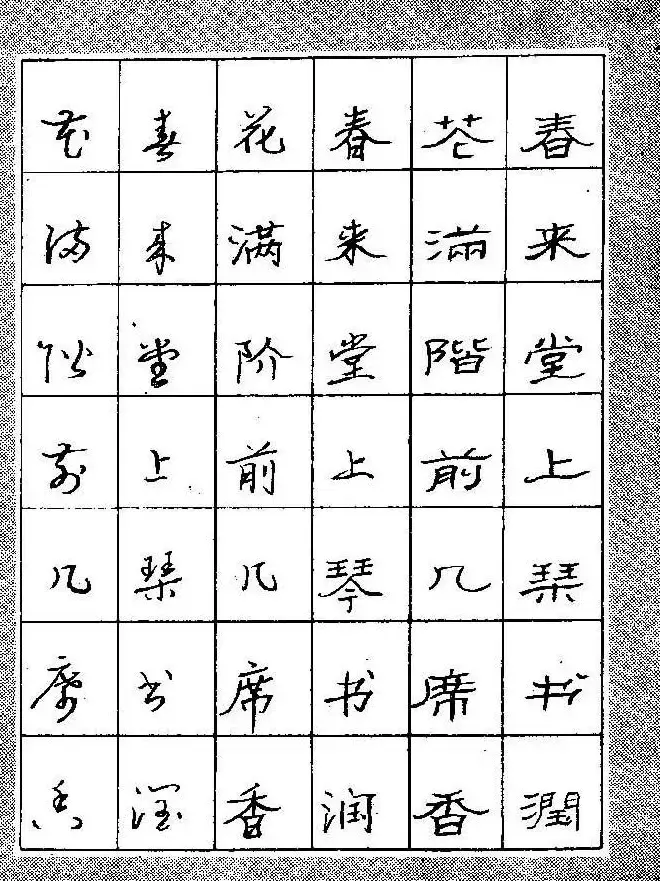 春来堂上琹书潤
花滿階前几席香
春来堂上琴书润
花满阶前几席香
春来堂上琹书润
花满阶前几席香